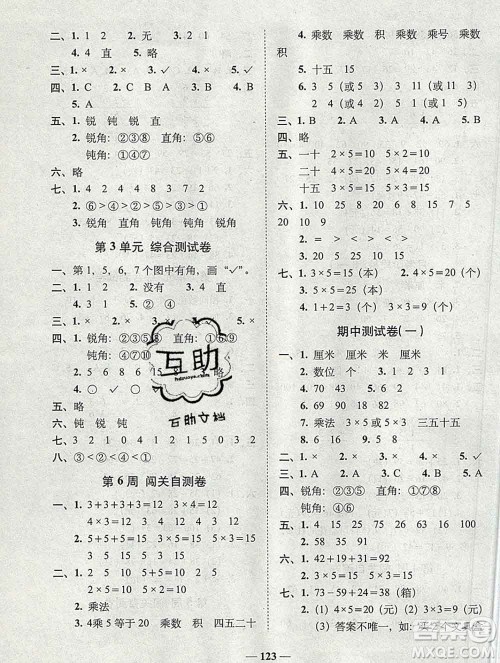 二、1. 1 2 2. 1 2 3. 无
4. 4 直 5. 略
三、1. × 2. × 3. ✓ 4. × 5. ✓
四、1. C 2. A B D 3. C 4. B
5. A
五、1. 锐 钝 锐 钝 直
2. 锐角：②③⑧ 直角：①④⑥
钝角：⑤⑦
六、略
七、1. 4 2 1 5 0 2 1 3
2. ⑥>④>②>⑤>③>①
3. 锐角 钝角 直角 锐角
第 3 单元 综合测试卷
一、第 1，5，6，7 个图中有角，画“✓”。
二、1. 1 2 2. 没有 3. 4 直
4. 直角 5. ② ④
三、1. × 2. × 3. 4. × 5. ✓
四、1. 锐角：②③⑧ 直角：①④⑥
钝角：⑤⑦
2. ⑥②④
3. 8 5
4. 
五、略
六、钝 锐 钝
七、3 2 1 0 4 1 2 5 0 1 2
八、
第 6 周 闯关自测卷
一、1. 3+3+3+3=12 3×4=12
2+2+2+2=8 2×4=8
2. 10 2 5 5+5=10
5×2=10 2×5=10
二、1. 2 5 10 2 5 10
2. 乘法
3. 4乘5等于20 乘数 积 四五二十
4. 乘数 乘数 积 乘数 乘号 乘数
积
5. 十五 15
6. 3 1（或 5） 3 11（或 5）
2 5（或 3） 2 13（或 5）
三、1. B 2. A 3. C 4. A 5. C
四、略
五、一十 2×5=10 5×2=10
二十 4×5=20 5×4=20
十五 3×5=15 5×3=15
六、1. 10 25 8 9 15 20
2. 15 20 9 25
七、1. 3×5=15（本）
2. 5×2=10（个）
3. 3×5=15（个）
4. 1+2=3（个） 3×3=9（个）
期中测试卷(一)
一、1. 厘米 厘米 米 厘米
2. 数位 个 3. 17 4. 32 5. 92
6. 18 27 59 70 83 9
7. 乘法 3×4 4×3 三五十五
二、1. C 2. B 3. B 4. C 5. C
三、1. A 2. A 3. A 4. B 5. A
四、锐角：②④⑤ 直角：①⑦⑧
钝角：③⑥
五、1. 4 15 20 26 66 95
2. 87 21 54
六、1. 42+19+31=92
2. 94-37-19=38
七、1. 58-34=24（箱）
2. (1) 4×5=20（元） (2) 3×3=9（元）
(3) 答案不唯一，如：
123
互助
互助文档
MXQE.COM